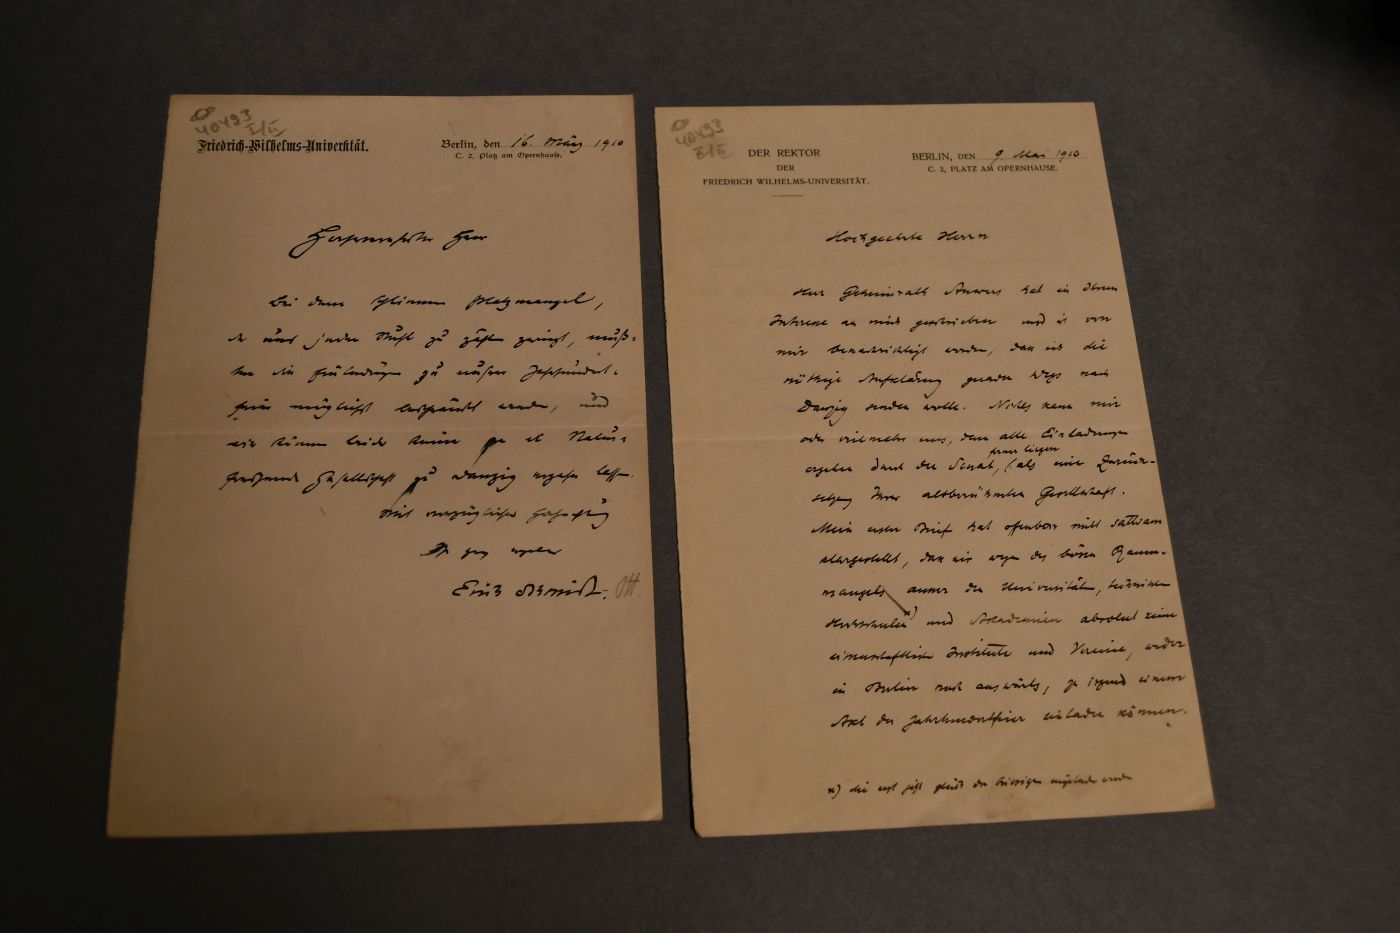 40493
I/II
Friedrich-Wilhelms-Universität.
Berlin, den 16. März 1910
C. 2, Platz am Opernhause.
Herr
Bei dem schlimmen Platzmangel,
der uns jeden Stuhl zu zählen zwingt, muß-
ten die Einladungen zu unserer Jahrhundert-
feier möglichst beschränkt werden, und
wir können leider keine an die Natur-
forschende Gesellschaft zu Danzig ergehen lassen.
Mit vorzüglicher Hochachtung
Ihr ganz ergebener
Erich Schmidt.
40493
I/II
DER REKTOR
DER
FRIEDRICH WILHELMS-UNIVERSITÄT.
BERLIN, DEN 9 Mai 1910
C. 2, PLATZ AM OPERNHAUSE.
Hochgeehrte Herrn
Herr Geheimrath Auwers hat in Ihrem
Interesse an mich geschrieben und ist von
mir benachrichtigt worden, dass ich die
nöthige Aufklärung gerades Wegs nach
Danzig senden wolle. Nichts kann mir
oder vielmehr uns, denn alle Einladungen
ergehen durch den Senat, ferner liegen als eine Zurück-
setzung Ihrer altberühmten Gesellschaft.
Mein erster Brief hat offenbar nicht sattsam
klargestellt, dass wir wegen des bösen Raum-
mangels ausser den Universitäten, technischen
Hochschulen *) und Akademien absolut keine
wissenschaftlichen Institute und Vereine, weder
in Berlin noch auswärts, zu irgend einem
Akt der Jahrhundertfeier einladen können.
*) die erst jetzt